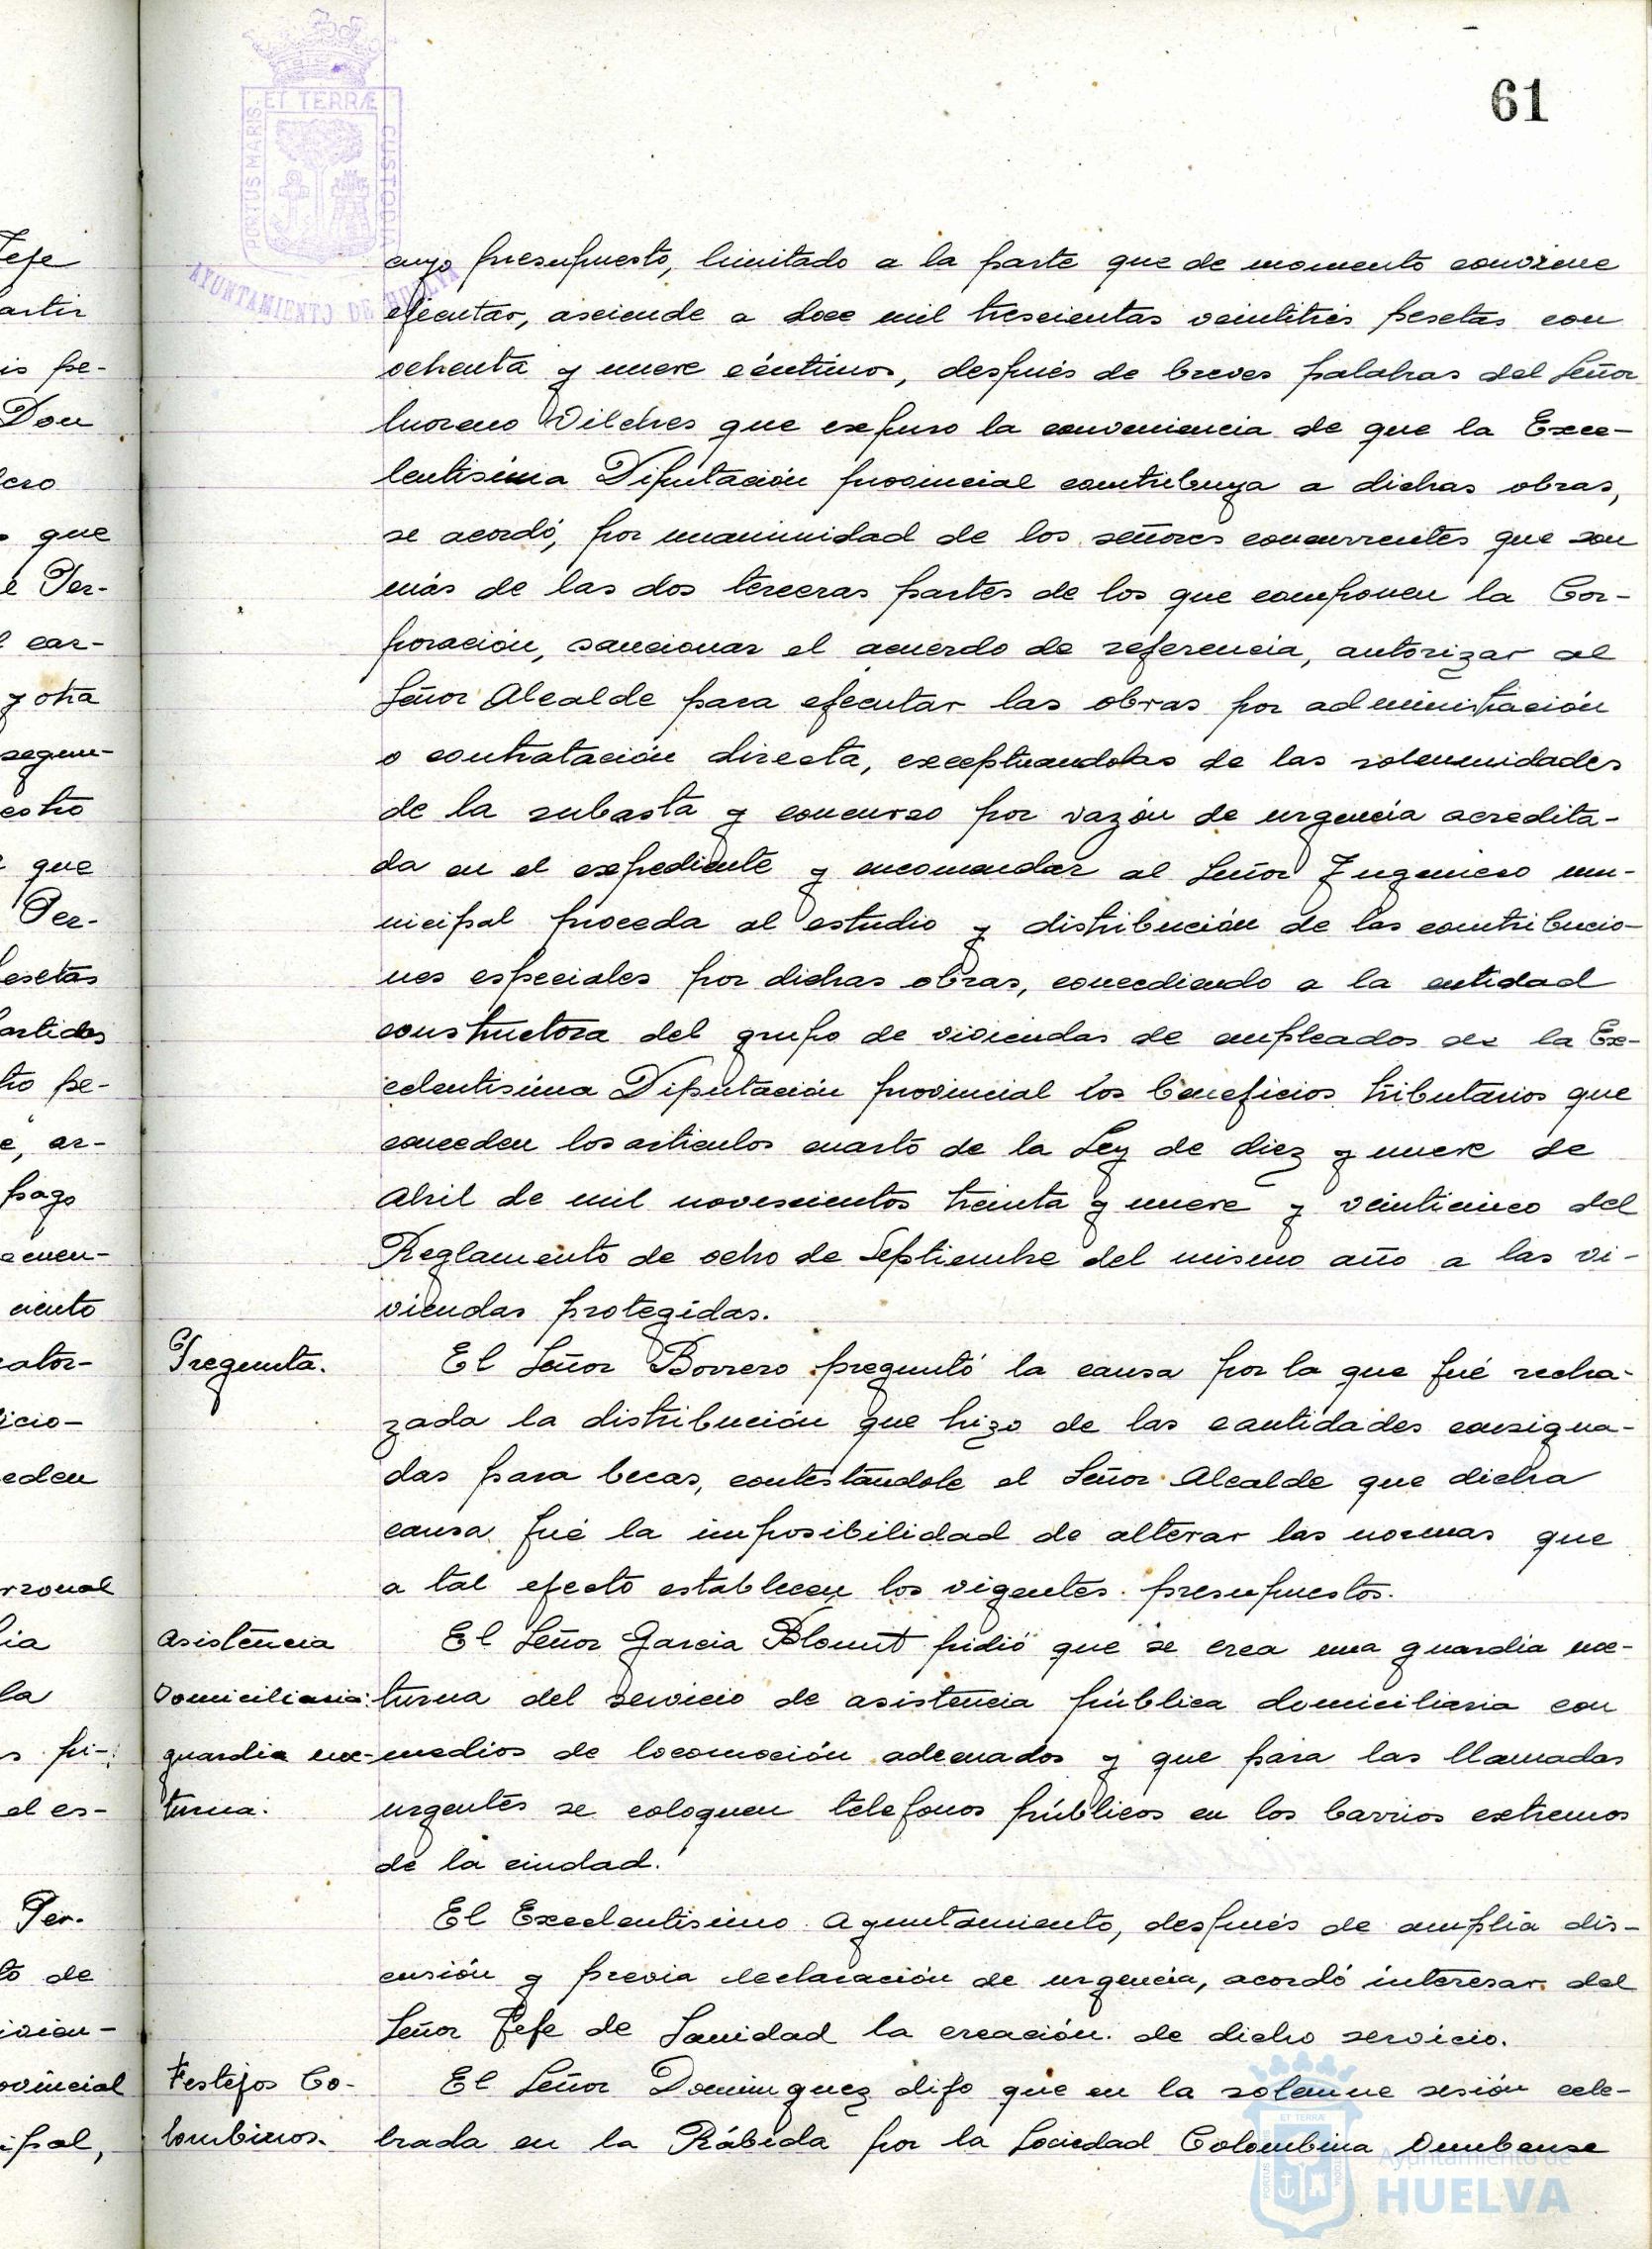 61
PORTUS MARIS ET TERRÆ CUSTODIA
AYUNTAMIENTO DE HUELVA
cuyo presupuesto, limitado a la parte que de momento conviene
ejecutar, asciende a doce mil trescientas veintitrés pesetas con
ochenta y nueve céntimos, después de breves palabras del Señor
Moreno Vilches que expuso la conveniencia de que la Exce-
lentísima Diputación provincial contribuya a dichas obras,
se acordó, por unanimidad de los señores concurrentes que son
más de las dos terceras partes de los que componen la Cor-
poración, sancionar el acuerdo de referencia, autorizar al
Señor Alcalde para ejecutar las obras por administración
o contratación directa, exceptuandolas de las solemnidades
de la subasta y concurso por razón de urgencia acredita-
da en el expediente y encomendar al Señor Ingeniero mu-
nicipal proceda al estudio y distribución de las contribucio-
nes especiales por dichas obras, concediendo a la entidad
constructora del grupo de viviendas de empleados de la Ex-
celentísima Diputación provincial los beneficios tributarios que
conceden los artículos cuarto de la Ley de diez y nueve de
Abril de mil novescientos treinta y nueve y veinticinco del
Reglamento de ocho de Septiembre del mismo año a las vi-
viendas protegidas.
Pregunta.
El Señor Borrero preguntó la causa por la que fué recha-
zada la distribución que hizo de las cantidades consigna-
das para becas, contestándole el Señor Alcalde que dicha
causa fué la imposibilidad de alterar las normas que
a tal efecto establecen los vigentes presupuestos.
Asistencia
Domiciliaria:
guardia noc-
turna.
El Señor Garcia Blount pidió que se crea una guardia noc-
turna del servicio de asistencia pública domiciliaria con
medios de locomoción adecuados y que para las llamadas
urgentes se coloquen telefonos públicos en los barrios extremos
de la ciudad.
El Excelentísimo Ayuntamiento, después de amplia dis-
cusión y previa declaración de urgencia, acordó interesar del
Señor Jefe de Sanidad la creación de dicho servicio.
Festejos Co-
lombinos.
El Señor Dominguez dijo que en la solemne sesión cele-
brada en la Rábida por la Sociedad Colombina Onubense
Ayuntamiento de
HUELVA
Jefe
artir
is pe-
Don
que
e Per-
l car-
y otra
segun-
estro
que
Per-
esetas
artidas
tro pe-
e, ar-
pago
cuen-
ciento
cator-
icio-
eden
rsonal
la
s pi-
el es-
Per-
to de
ivien-
ovincial
ipal,